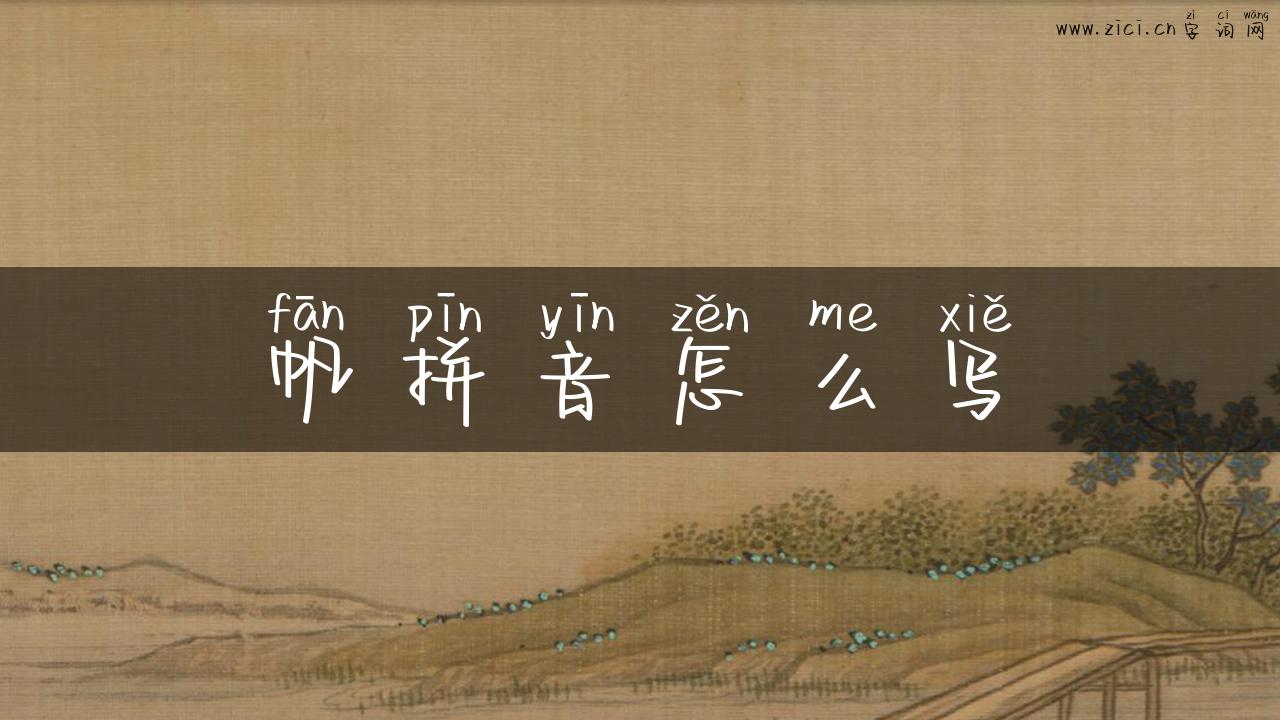 zì cí wǎng
www.zici.cn 字 词 网
fān pīn yīn zěn me xiě
帆 拼 音 怎 么 写